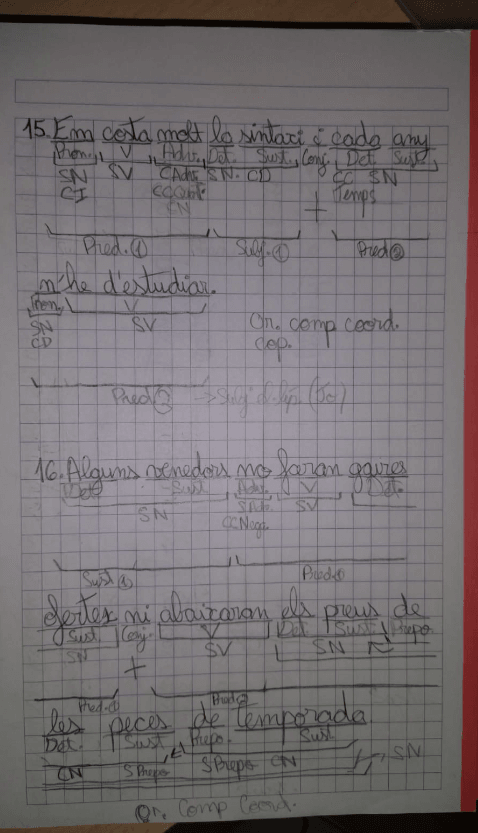 15. Em costa molt la sintaxi i cada any
Pron. V Adv. Det. Sust. Conj. Det. Sust.
SN SV CAdv. SN. CD CC SN
CI CCQuant. Temps
CN +
Pred. ① Suj. ① Pred ②
m'he d'estudiar.
Pron. V
SN SV Or. comp coord.
CD cop.
Pred ②
16. Alguns venedors no faran gaires
Det Sust Adv. V Det.
SN SAdv. SV
CCNega
Sust ① Pred. ①
ofertes ni abaixaran els preus de
Sust. Conj. V Det. Sust. Prepo
SN + SV SN N
Pred. ① Pred ②
les peces de temporada
Det. Sust Prepo. Sust
CN SPrepo SPrepo CN SN
Or. Comp Coord.